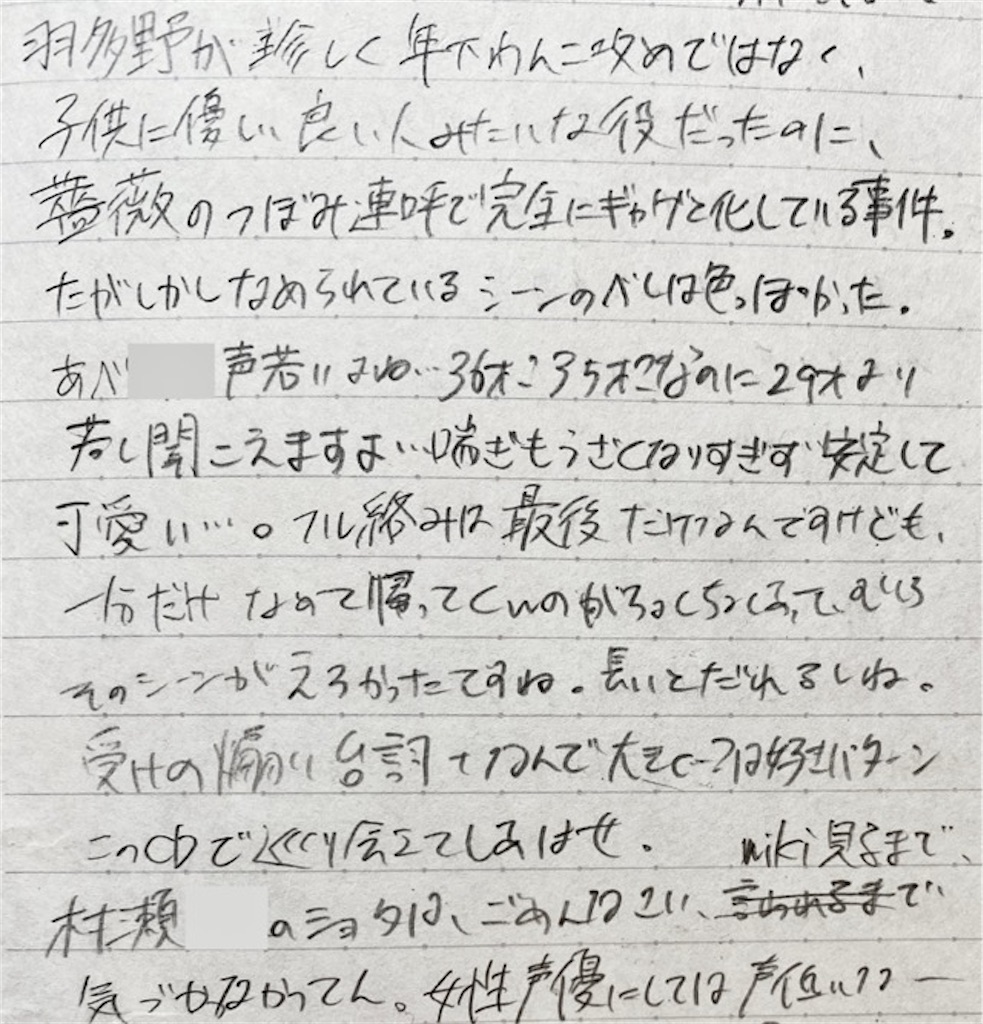 羽多野が珍しく年下わんこ攻めではなく、
子供に優しい良い人みたいな役だったのに、
薔薇のつぼみ連呼で完全にギャグと化している事件。
だがしかしなめられているシーンのべしは色っぽかった。
あべ 声若いよね…36才?35才?なのに29才より
若く聞こえますよ…喘ぎもうざくなりすぎず安定して
可愛い…。フル絡みは最後だけなんですけども、
一分だけなめて帰ってくいのがちょくちょくあって、むしろ
そのシーンがえろかったですね。長いとだれるしね。
受けの煽り台詞+なんで大きくーは好きパターン
このCDで巡り会えてしあはせ。 wiki見るまで、
村瀬 のショタは、ごめんなさい、言われるまで
気づかなかってん。女性声優にしては声低いなー